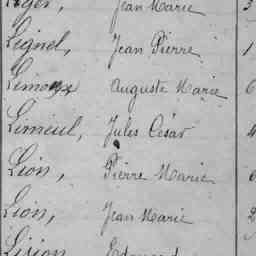 Léger, Jean Marie 3
Legnel, Jean Pierre 1
Lemoyx Auguste Marie 6
Limeul, Jules César 4
Lion, Pierre Marie 6
Lion, Jean Marie 2
Lision Edouard